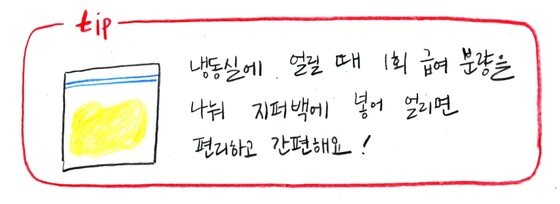 tip
냉동실에 얼릴 때 1회 급여 분량을
나눠 지퍼백에 넣어 얼리면
편리하고 간편해요!